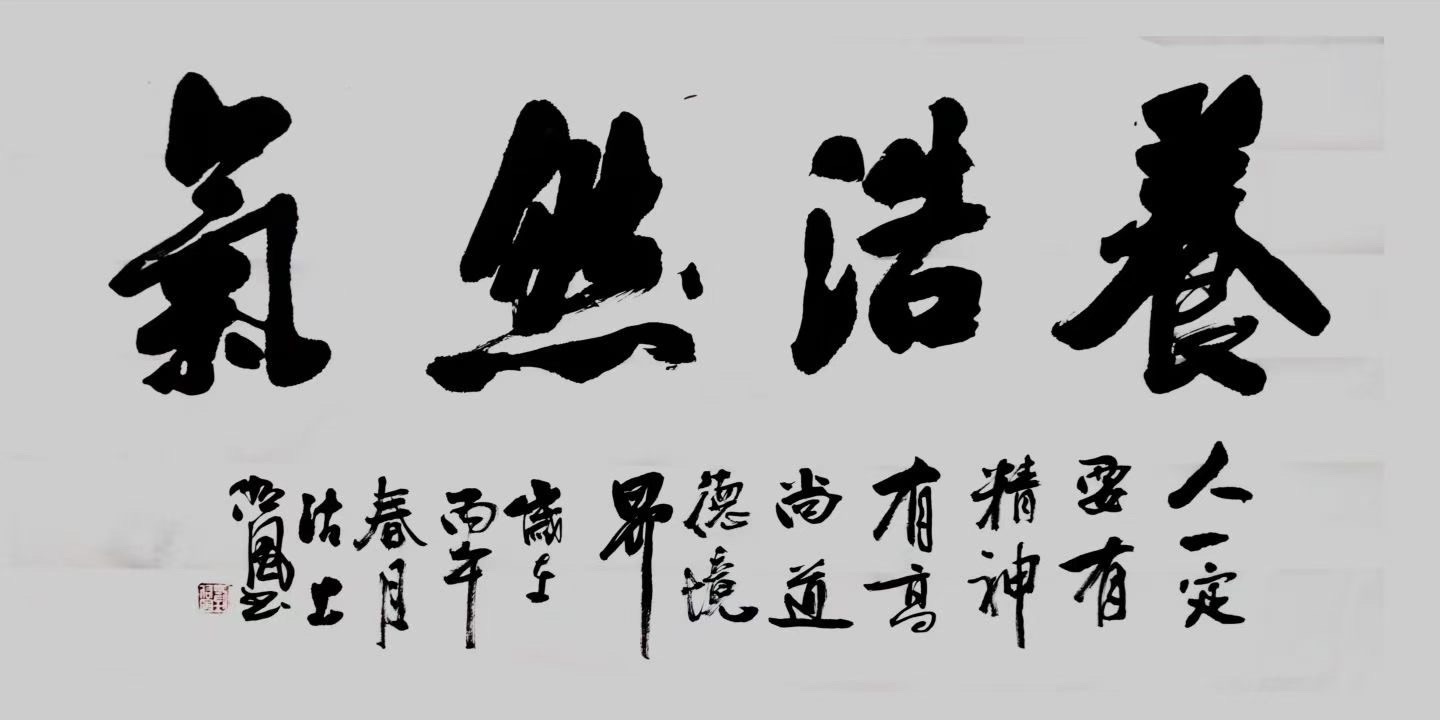 養浩然氣
人一定
要有
精神
有高
尚道
德境
界
歲在
丙午
春月
沽上